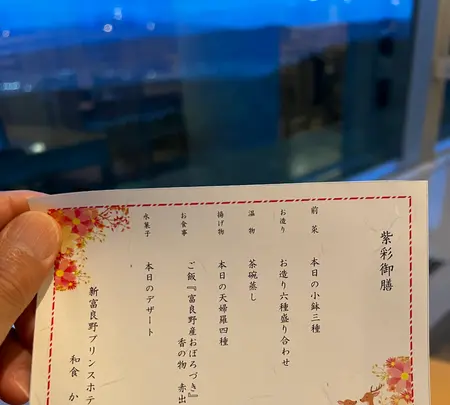 紫彩御膳
前菜 本日の小鉢三種
お造り お造り六種盛り合わせ
温物 茶碗蒸し
揚げ物 本日の天婦羅四種
お食事 ご飯『富良野産おぼろづき』
香の物 赤出
氷菓子 本日のデザート
新富良野プリンスホテ
和食 か